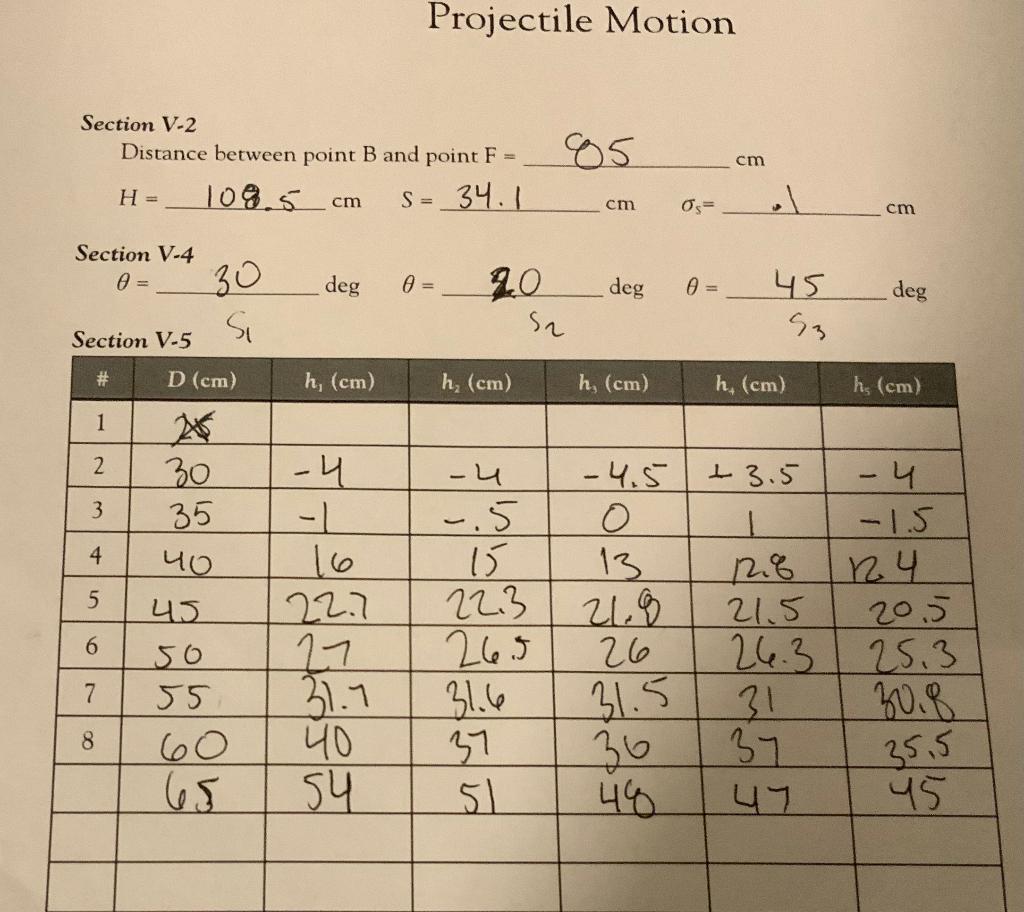 Projectile Motion
Section V-2
Distance between point B and point F = 85 cm
H = 108.5 cm S = 34.1 cm σs= .1 cm
Section V-4
θ = 30 deg θ = 20 deg θ = 45 deg
S1 S2 S3
Section V-5
# D (cm) h₁ (cm) h₂ (cm) h₃ (cm) h₄ (cm) h₅ (cm)
1
2 30 -4 -4 -4.5 3.5 -4
3 35 -1 -.5 0 1 -1.5
4 40 16 15 13 12.8 12.4
5 45 22.7 22.3 21.8 21.5 20.5
6 50 27 26.5 26 26.3 25.3
7 55 31.7 31.6 31.5 31 30.8
8 60 40 37 36 37 35.5
65 54 51 48 47 45